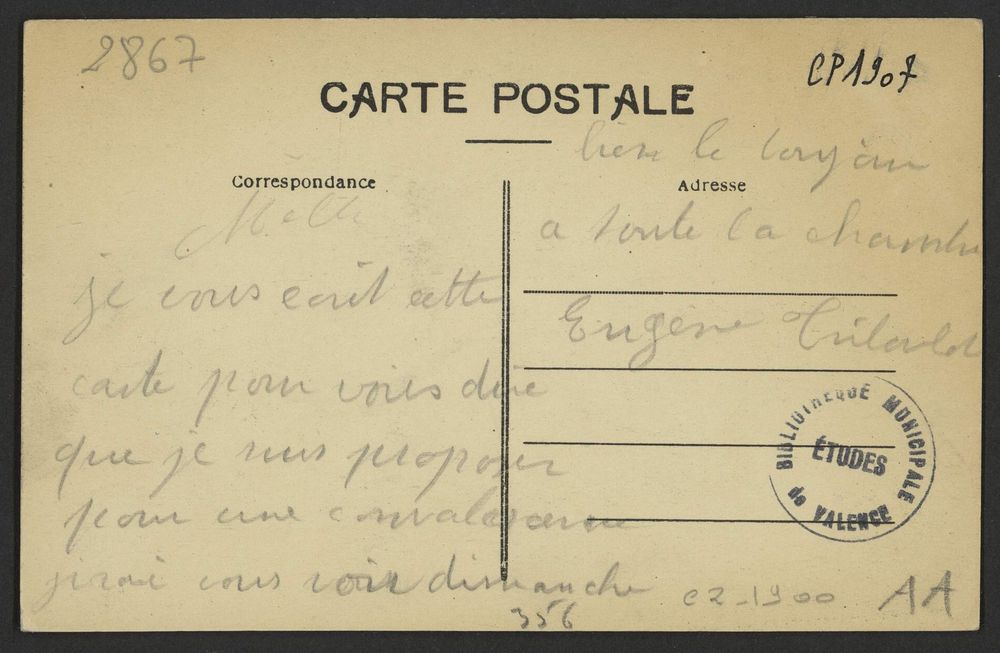 2867
CP1907
CARTE POSTALE
Correspondance
Melle
je vous ecrit cette
carte pour vous dire
que je suis proposer
pour une convalesence
jirai vous voir dimanche
Adresse
bien le bonjour
a toute la chambre
Eugène
BIBLIOTHEQUE MUNICIPALE
ÉTUDES
de VALENCE
356
CZ-1900
AA